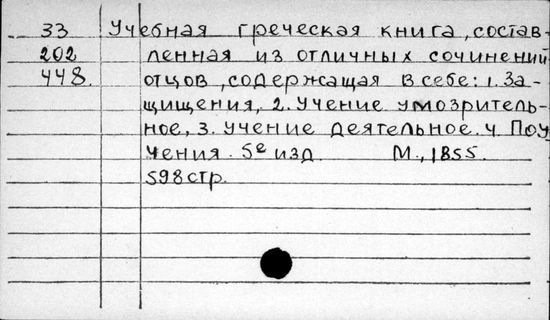 33 Учебная греческая книга, состав-
202 ленная из отличных сочинений
448. отцов, содержащая в себе: 1. За-
щищения, 2. Учение умозритель-
ное, 3. Учение деятельное. 4. Поу
чения. 5е изд. М., 1855.
598 стр.